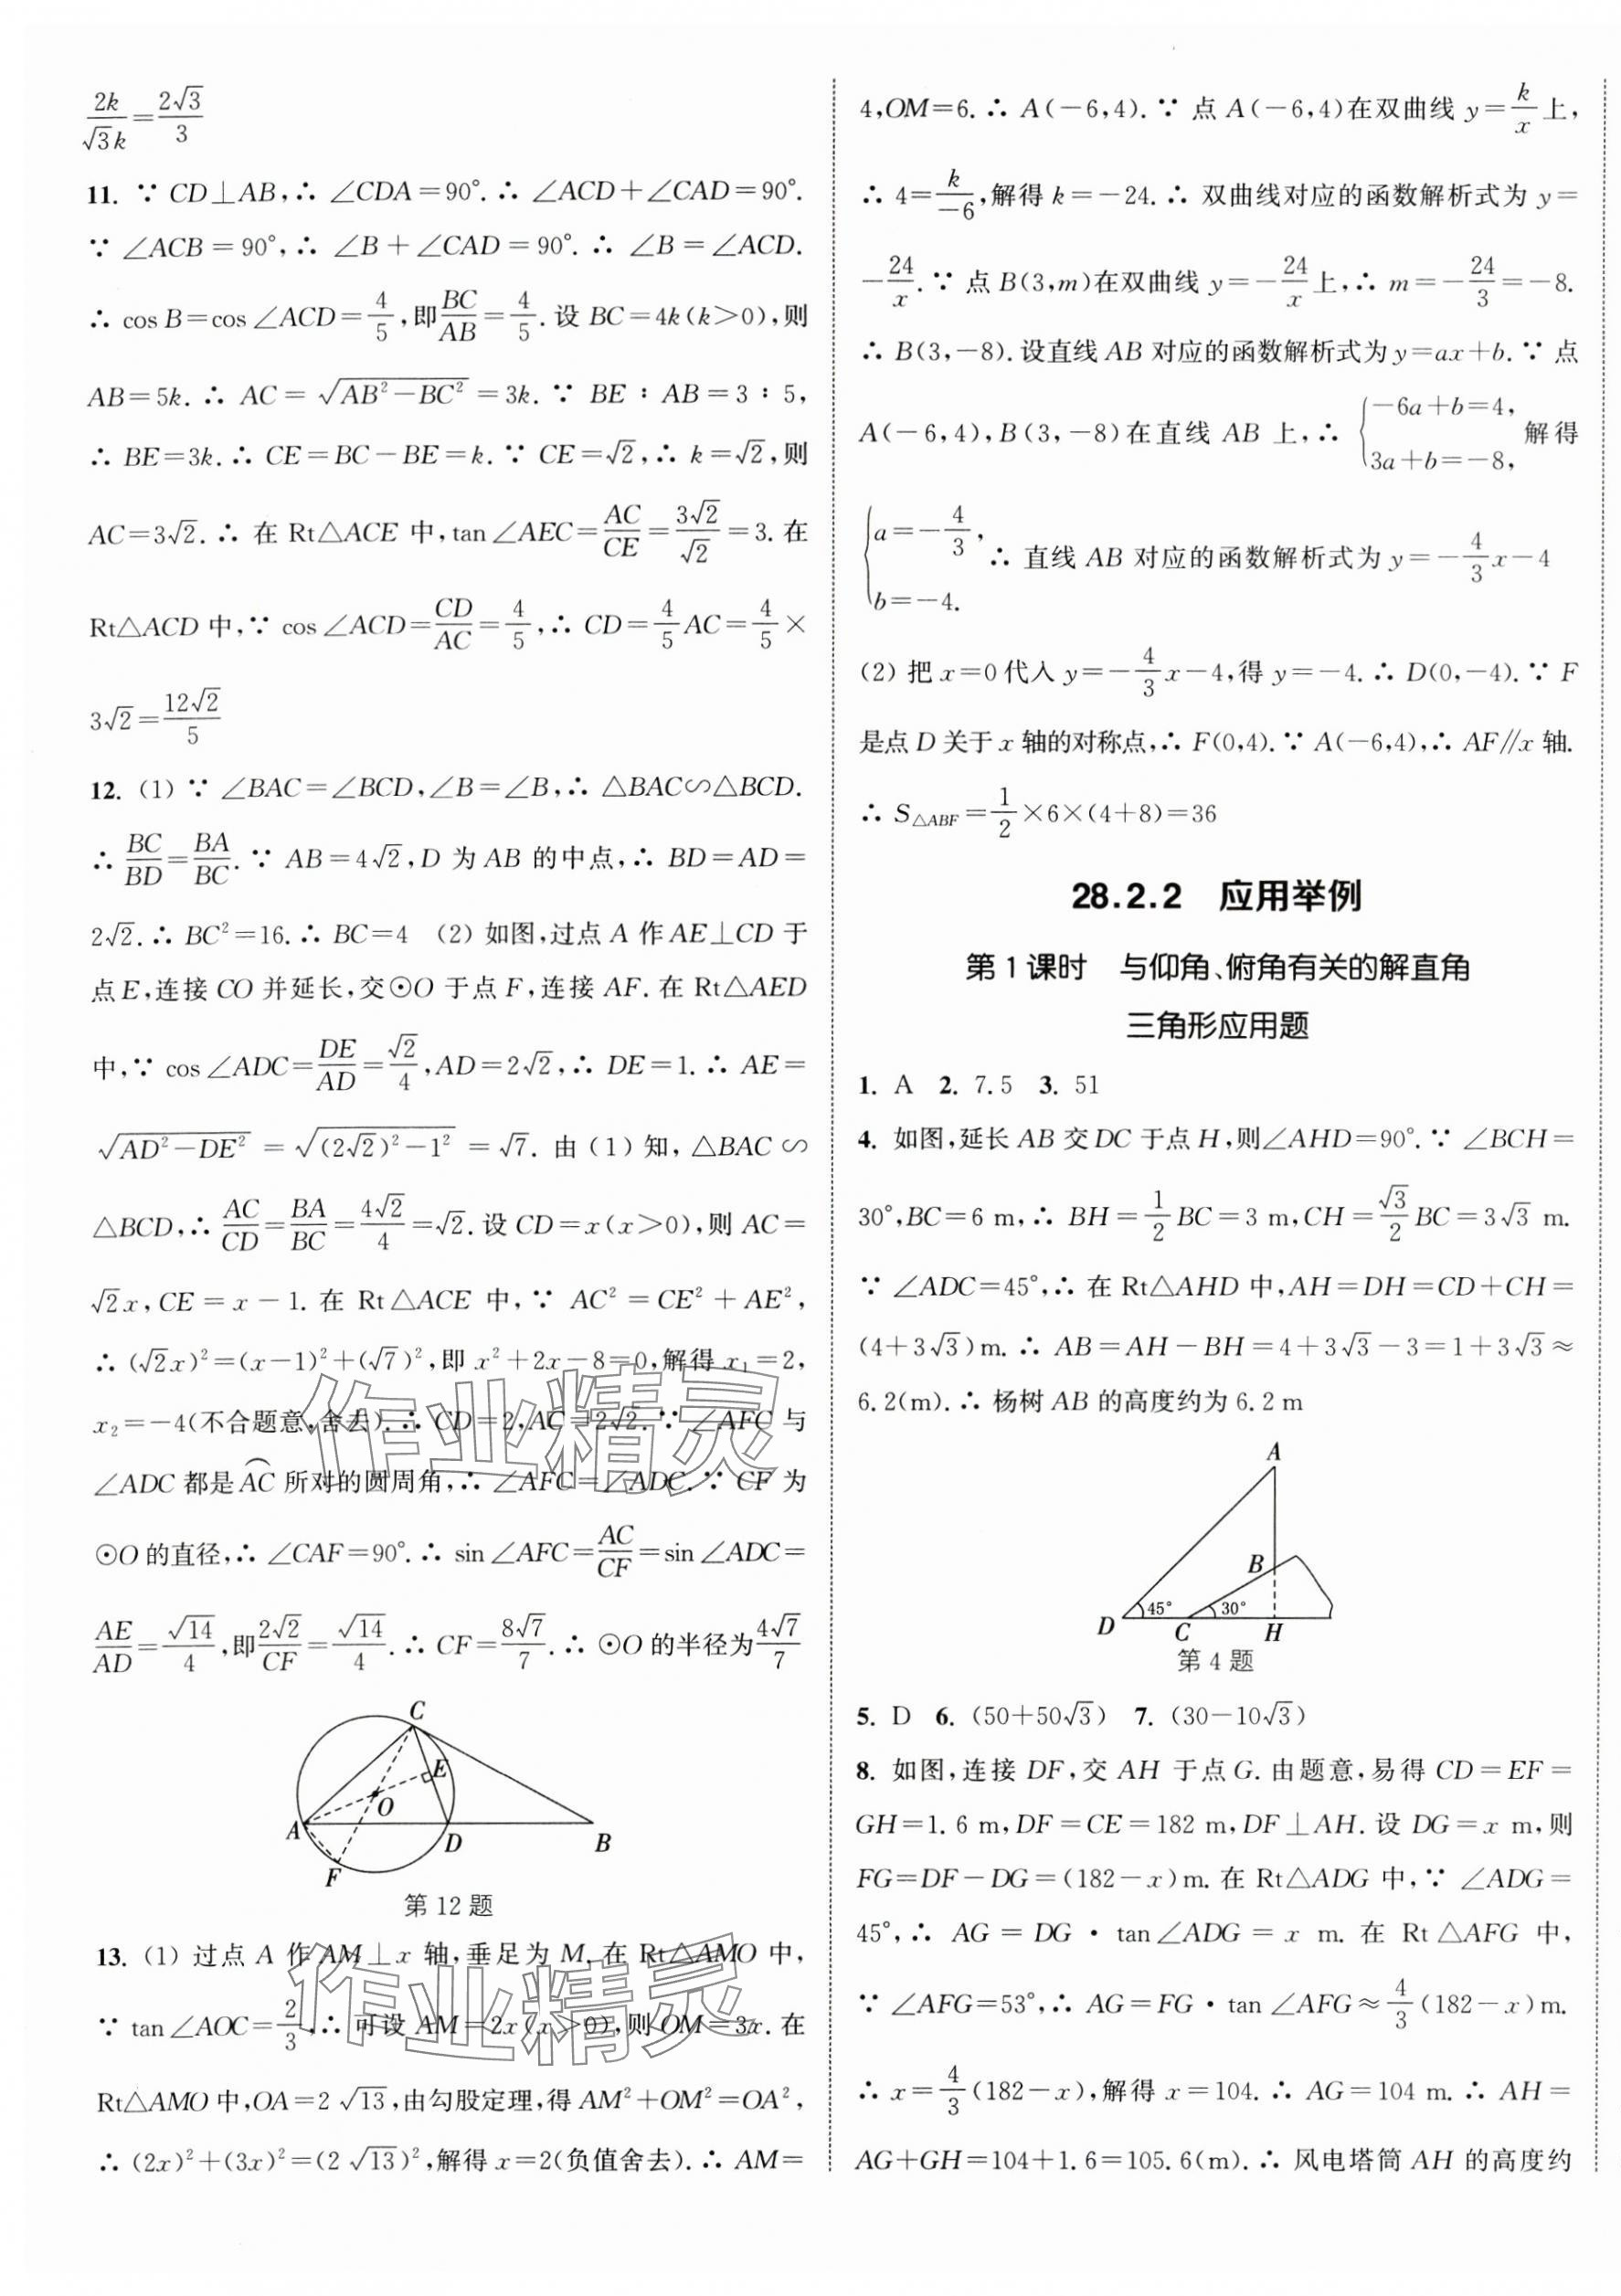 2k/√3k=2√3/3
11. ∵ CD⊥AB,∴ ∠CDA=90°.∴ ∠ACD+∠CAD=90°.
∵ ∠ACB=90°,∴ ∠B+∠CAD=90°.∴ ∠B=∠ACD.
∴ cos B=cos∠ACD=4/5,即BC/AB=4/5.设 BC=4k(k>0),则
AB=5k.∴ AC=√(AB²−BC²)=3k.∵ BE∶AB=3∶5,
∴ BE=3k.∴ CE=BC−BE=k.∵ CE=√2,∴ k=√2,则
AC=3√2.∴ 在 Rt△ACE 中,tan∠AEC=AC/CE=3√2/√2=3.在
Rt△ACD 中,∵ cos∠ACD=CD/AC=4/5,∴ CD=4/5AC=4/5×
3√2=12√2/5
12. (1) ∵ ∠BAC=∠BCD,∠B=∠B,∴ △BAC∽△BCD.
∴ BC/BD=BA/BC.∵ AB=4√2,D 为 AB 的中点,∴ BD=AD=
2√2.∴ BC²=16.∴ BC=4 (2) 如图,过点 A 作 AE⊥CD 于
点 E,连接 CO 并延长,交⊙O 于点 F,连接 AF.在 Rt△AED
中,∵ cos∠ADC=DE/AD=√2/4,AD=2√2,∴ DE=1.∴ AE=
√(AD²−DE²)=√((2√2)²−1²)=√7.由(1)知,△BAC∽
△BCD,∴ AC/CD=BA/BC=4√2/4=√2.设 CD=x(x>0),则 AC=
√2x,CE=x−1.在 Rt△ACE 中,∵ AC²=CE²+AE²,
∴ (√2x)²=(x−1)²+(√7)²,即 x²+2x−8=0,解得 x₁=2,
x₂=−4(不合题意,舍去).∴ CD=2,AC=2√2.∵ ∠AFC 与
∠ADC 都是 AC⌒ 所对的圆周角,∴ ∠AFC=∠ADC.∵ CF 为
⊙O 的直径,∴ ∠CAF=90°.∴ sin∠AFC=AC/CF=sin∠ADC=
AE/AD=√14/4,即2√2/CF=√14/4.∴ CF=8√7/7.∴ ⊙O 的半径为4√7/7
C
E
O
A
D
B
F
第12题
13. (1) 过点 A 作 AM⊥x 轴,垂足为 M.在 Rt△AMO 中,
∵ tan∠AOC=2/3,∴ 可设 AM=2x(x>0),则 OM=3x.在
Rt△AMO 中,OA=2√13,由勾股定理,得 AM²+OM²=OA²,
∴ (2x)²+(3x)²=(2√13)²,解得 x=2(负值舍去).∴ AM=
作业精灵
作业精灵
4,OM=6.∴ A(−6,4).∵ 点 A(−6,4)在双曲线 y=k/x上,
∴ 4=k/−6,解得 k=−24.∴ 双曲线对应的函数解析式为 y=
−24/x.∵ 点 B(3,m)在双曲线 y=−24/x上,∴ m=−24/3=−8.
∴ B(3,−8).设直线 AB 对应的函数解析式为 y=ax+b.∵ 点
A(−6,4),B(3,−8)在直线 AB 上,∴ {−6a+b=4, 3a+b=−8, 解得
{a=−4/3, b=−4. ∴ 直线 AB 对应的函数解析式为 y=−4/3x−4
(2) 把 x=0代入 y=−4/3x−4,得 y=−4.∴ D(0,−4).∵ F
是点 D 关于 x 轴的对称点,∴ F(0,4).∵ A(−6,4),∴ AF∥x 轴.
∴ S△ABF=1/2×6×(4+8)=36
28.2.2 应用举例
第1课时 与仰角、俯角有关的解直角
三角形应用题
1. A 2. 7.5 3. 51
4. 如图,延长 AB 交 DC 于点 H,则∠AHD=90°.∵ ∠BCH=
30°,BC=6 m,∴ BH=1/2BC=3 m,CH=√3/2BC=3√3 m.
∵ ∠ADC=45°,∴ 在 Rt△AHD 中,AH=DH=CD+CH=
(4+3√3)m.∴ AB=AH−BH=4+3√3−3=1+3√3≈
6.2(m).∴ 杨树 AB 的高度约为 6.2 m
A
B
45°
30°
D
C
H
第4题
5. D 6. (50+50√3) 7. (30−10√3)
8. 如图,连接 DF,交 AH 于点 G.由题意,易得 CD=EF=
GH=1.6 m,DF=CE=182 m,DF⊥AH.设 DG=x m,则
FG=DF−DG=(182−x)m.在 Rt△ADG 中,∵ ∠ADG=
45°,∴ AG=DG·tan∠ADG=x m.在 Rt△AFG 中,
∵ ∠AFG=53°,∴ AG=FG·tan∠AFG≈4/3(182−x)m.
∴ x=4/3(182−x),解得 x=104.∴ AG=104 m.∴ AH=
AG+GH=104+1.6=105.6(m).∴ 风电塔筒 AH 的高度约